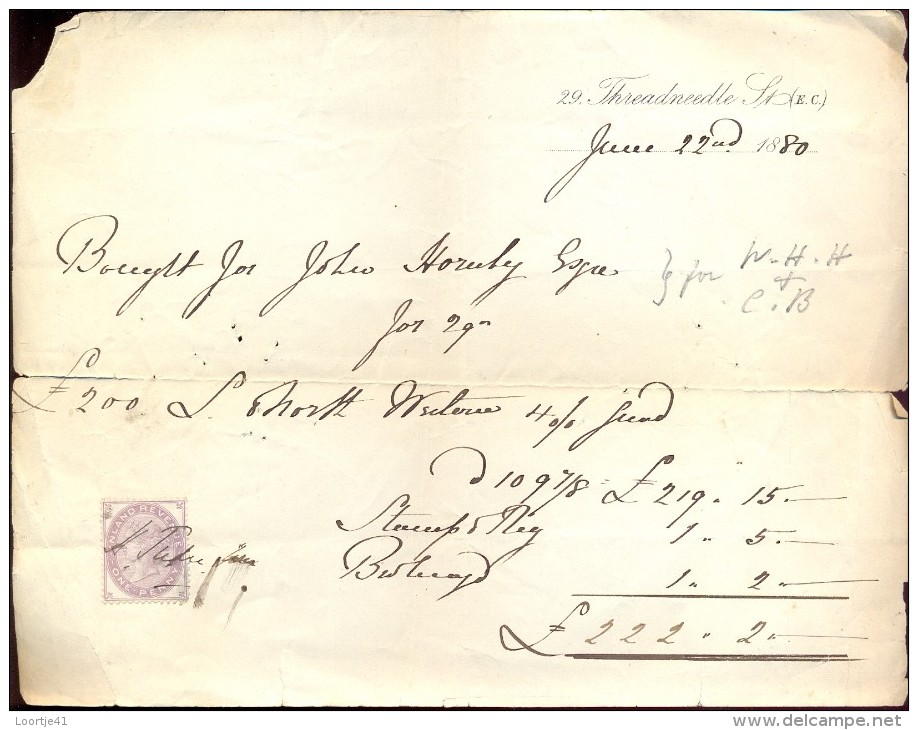 29. Threadneedle St. (E.C.)
June 22nd 1880
Bought for John Hornby Esqre } for W.H.H
+
C.B
for 29n
£200 L & North Western 4 o/o
@ 109 7/8 = £219 " 15 "
Stamp & Reg 1 " 5 "
Brokerage 1 " 2 "
£222 " 2 "
INLAND REVENUE
ONE PENNY
Loortje41
www.delcampe.net